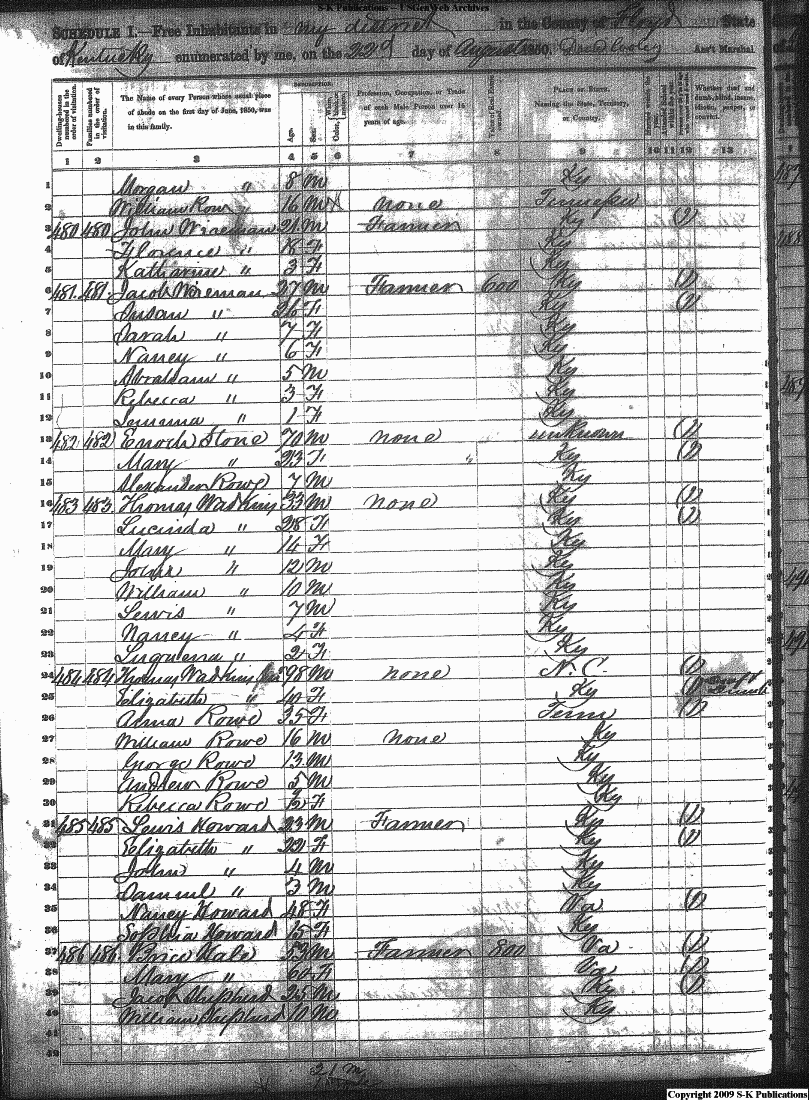 S-K Publications - USGenWeb Archives
SCHEDULE I.—Free Inhabitants in my district in the County of Floyd State
of Kentucky enumerated by me, on the 22d day of August 1850. David Cooley Ass't Marshal
Dwelling-houses numbered in the order of visitation. Families numbered in the order of visitation. The Name of every Person whose usual place of abode on the first day of June, 1850, was in this family. DESCRIPTION. Age. Sex. Profession, Occupation, or Trade of each Male Person over 15 years of age. Value of Real Estate owned. PLACE OF BIRTH. Naming the State, Territory, or Country. Whether deaf and dumb, blind, insane, idiotic, pauper, or convict.
1 2 3 4 5 6 7 8 9 10 11 12 13
1 Morgan " 8 M Ky
2 William Rowe 16 M none Tennessee
3 480 480 John Wireman 21 M Farmer Ky (1)
4 Florence " 18 F Ky
5 Katharine " 3 F Ky
6 481 481 Jacob Wireman 27 M Farmer 600 Ky (1)
7 Susan " 26 F Ky (1)
8 Sarah " 7 F Ky
9 Nancy " 6 F Ky
10 Abraham " 5 M Ky
11 Rebecca " 3 F Ky
12 " 1 F Ky
13 482 482 Enoch Stone 70 M none unknown (1)
14 Mary " 33 F " Ky (1)
15 Alexander Rowe 7 M Ky
16 483 483 Thomas Wadkins 33 M none Ky (1)
17 Lucinda " 28 F Ky (1)
18 Mary " 14 F Ky
19 John " 12 M Ky
20 William " 10 M Ky
21 Lewis " 7 M Ky
22 Nancy " 4 F Ky
23 " 2 F Ky
24 484 484 Thomas Wadkins 98 M none N.C. (1)
25 Elizabeth " 40 F Ky (1) Deaf & Dumb
26 Anna Rowe 35 F Tenn (1)
27 William Rowe 16 M none Ky
28 George Rowe 13 M Ky
29 Andrew Rowe 5 M Ky
30 Rebecca Rowe F Ky
31 485 485 Lewis Howard 23 M Farmer Ky (1)
32 Elizabeth " 22 F Ky (1)
33 John " 4 M Ky
34 Samuel " 3 M Ky
35 Nancy Howard 48 F Va (1)
36 Sophia Howard 15 F Ky
37 486 486 Price Hale 53 M Farmer 800 Va (1)
38 Mary " 60 F Va (1)
39 Jacob Shepherd 25 M Ky (1)
40 William Shepherd 10 M Ky
41
42
21 M
Copyright 2009 S-K Publications